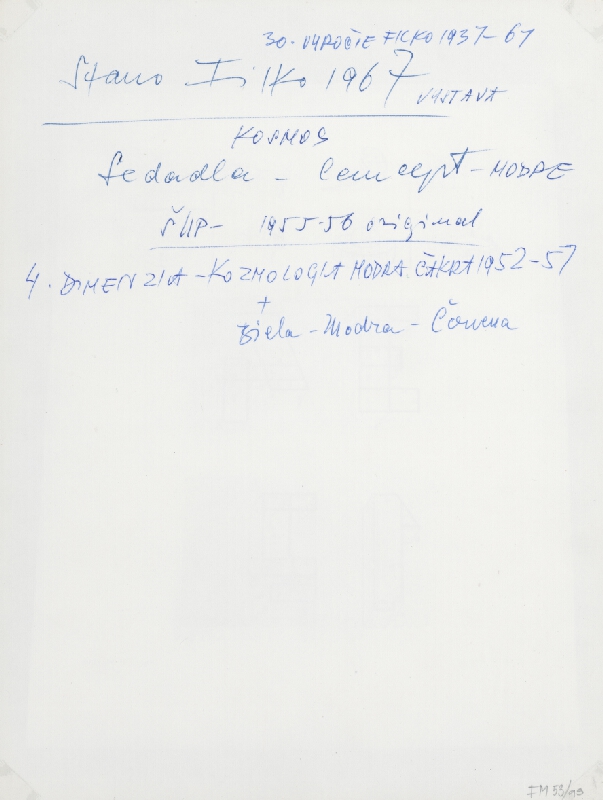 30. VÝROČIE FILKO 1937-67
Stano Filko 1967
VÝSTAVA
KOSMOS
Sedadla - Concept - MODRE
ŠUP- 1955-56 original
4. DIMENZIA - KOZMOLOGIA MODRA ČAKRA 1952-57
+
Biela - Modra - Červena
IM 53/93